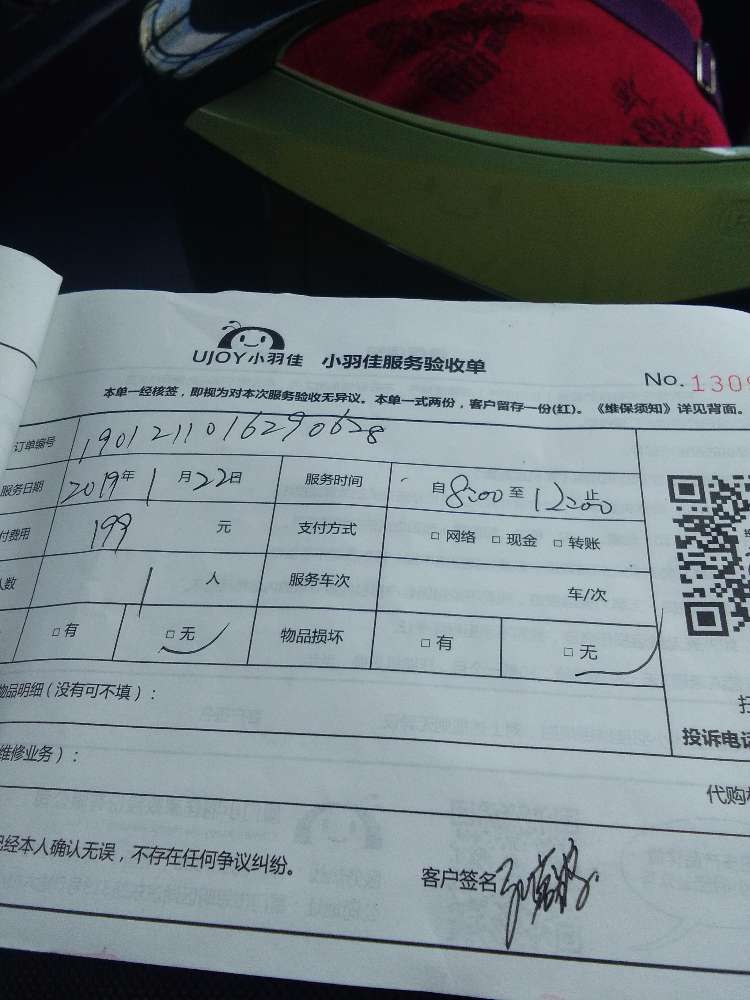 UJOY小羽佳 小羽佳服务验收单
No. 1309
本单一经核签，即视为对本次服务验收无异议。本单一式两份，客户留存一份(红)。《维保须知》详见背面。
订单编号 1901211016290628
服务日期 2019年1月22日 服务时间 自8:00至12:00止
付费用 199元 支付方式 □ 网络 □ 现金 □ 转账
人数 1人 服务车次 车/次
□ 有 □ 无 物品损坏 □ 有 □ 无
物品明细（没有可不填）：
投诉电话
维修业务）：
代购
已经本人确认无误，不存在任何争议纠纷。
客户签名